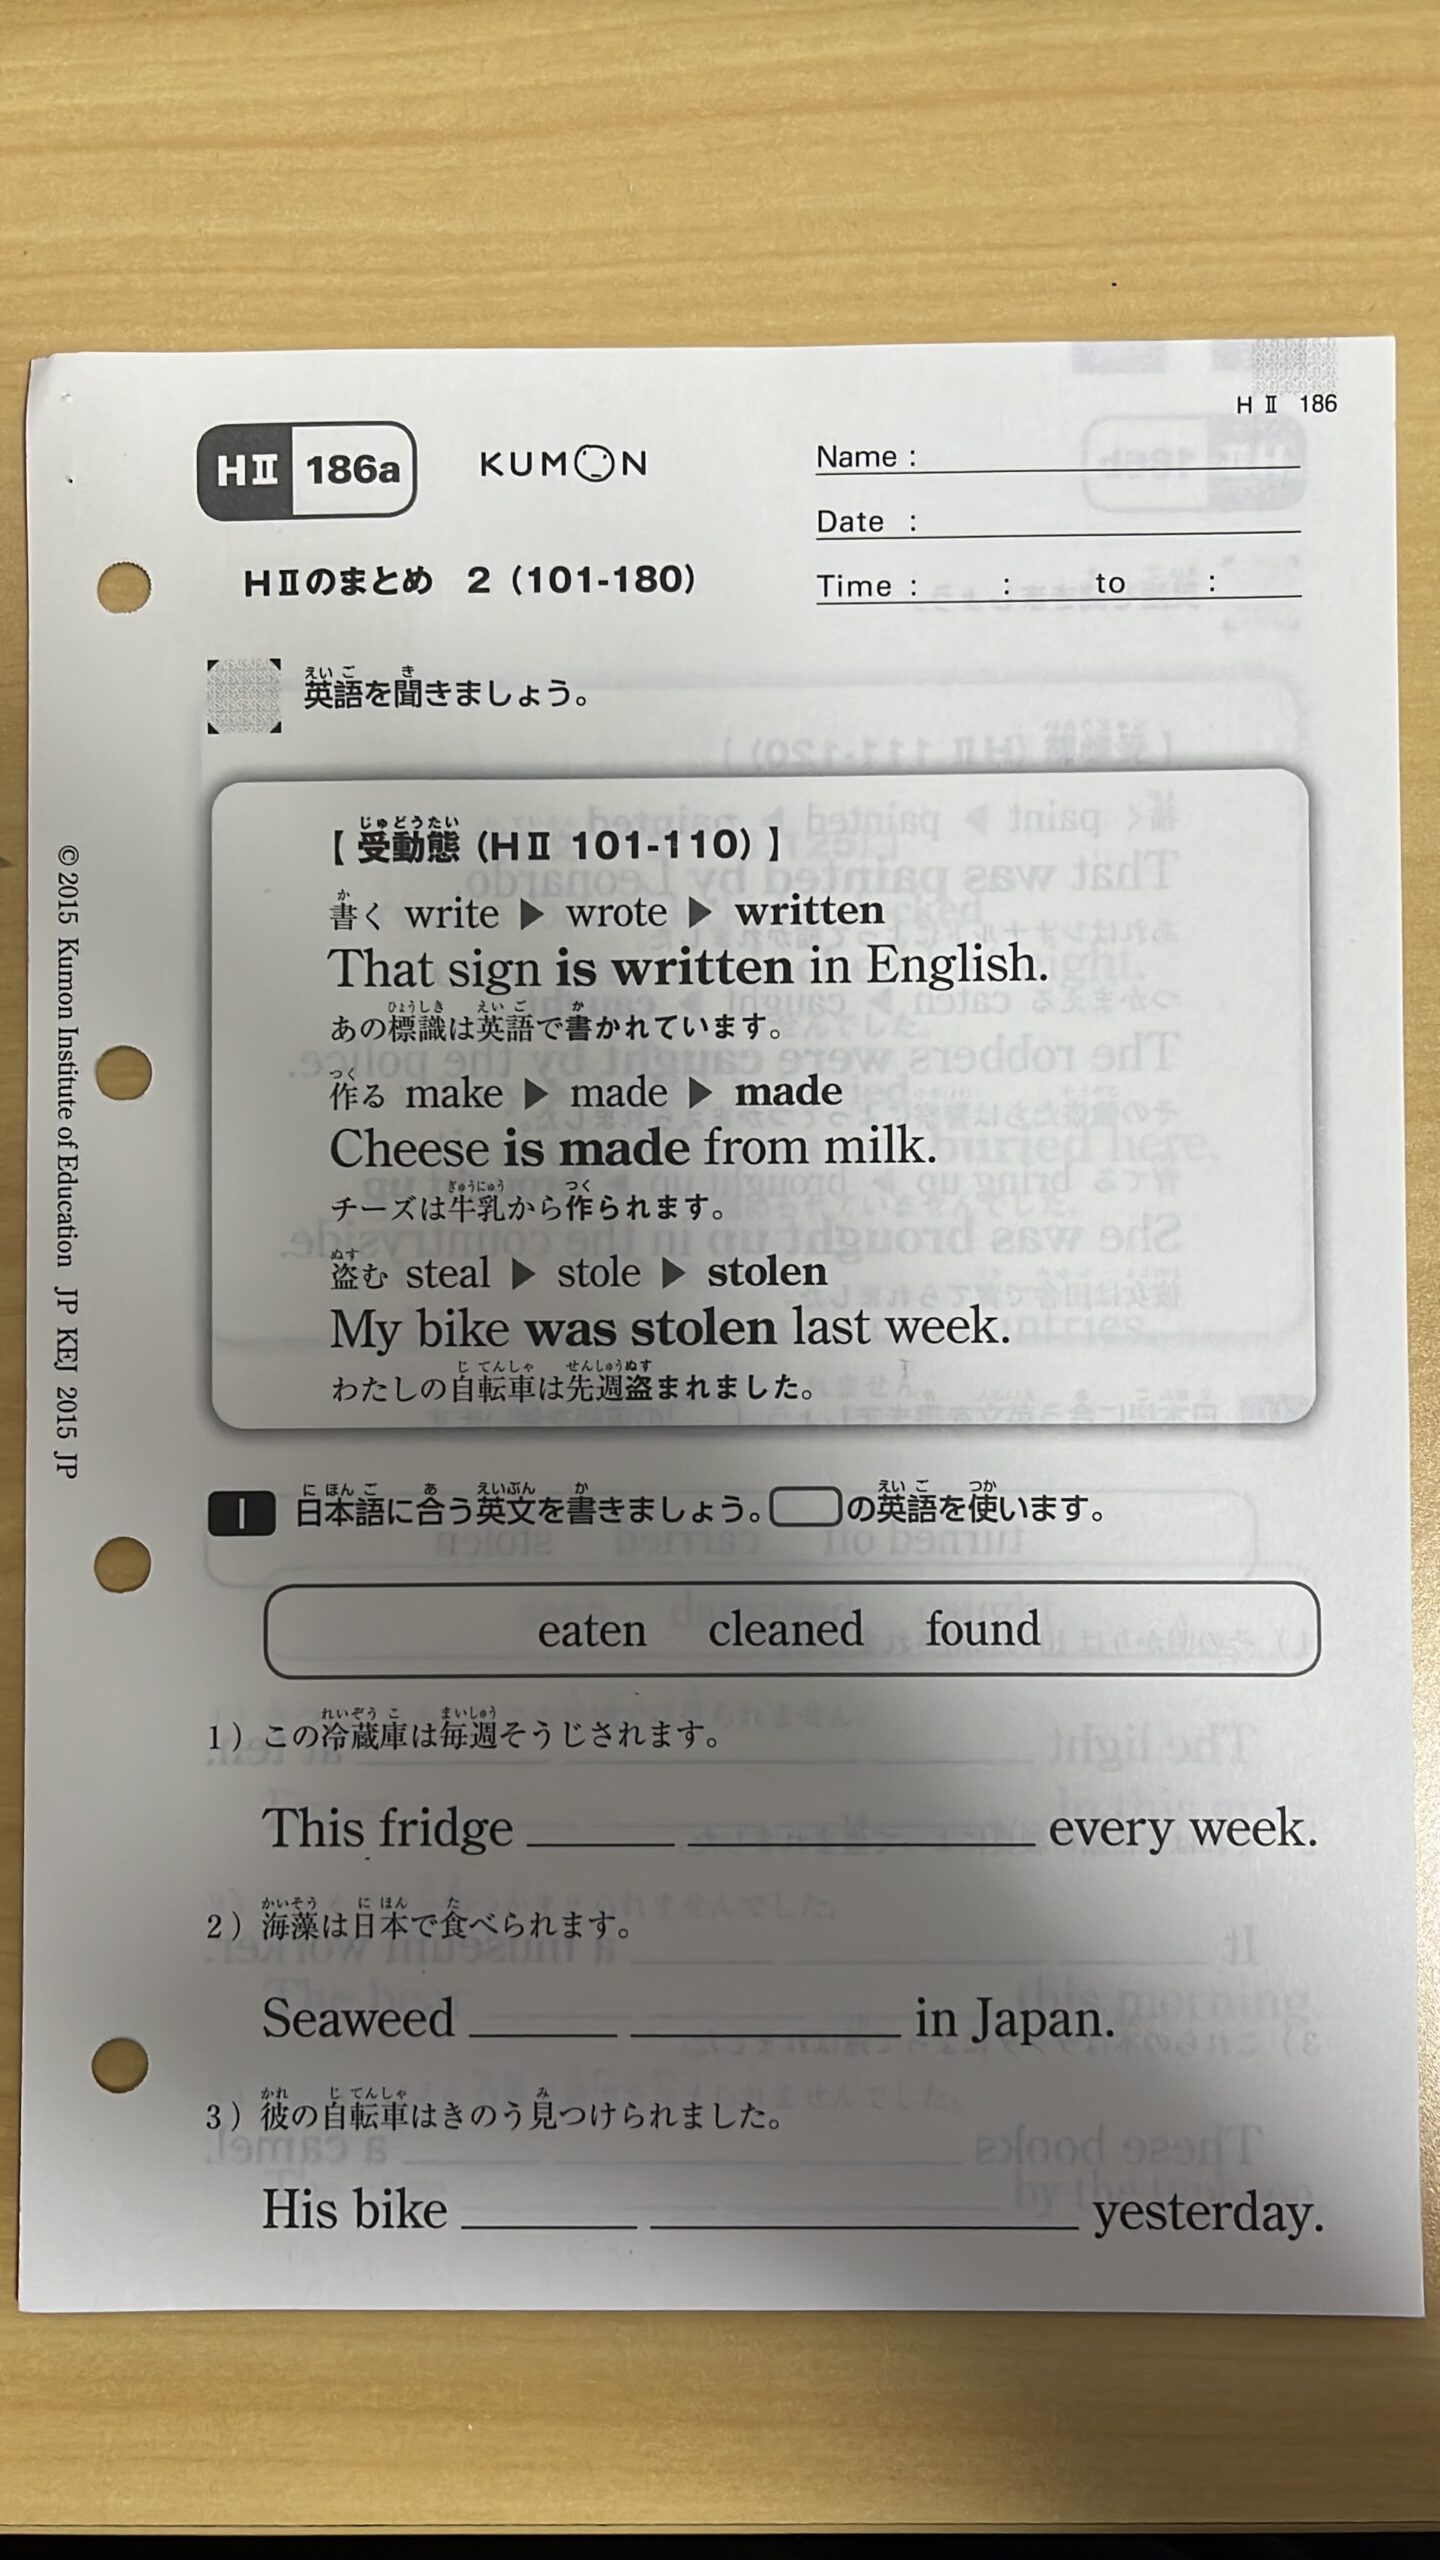 H Ⅱ 186
HⅡ 186a
KUMON
Name :
Date :
Time : : to :
HⅡのまとめ 2 (101-180)
えいご き
英語を聞きましょう。
じゅどうたい
【 受動態 (HⅡ 101-110) 】
か
書く write ▶ wrote ▶ written
That sign is written in English.
ひょうしき えいご か
あの標識は英語で書かれています。
つく
作る make ▶ made ▶ made
Cheese is made from milk.
ぎゅうにゅう つく
チーズは牛乳から作られます。
ぬす
盗む steal ▶ stole ▶ stolen
My bike was stolen last week.
じてんしゃ せんしゅうぬす
わたしの自転車は先週盗まれました。
にほんご あ えいぶん か えいご つか
1 日本語に合う英文を書きましょう。 の英語を使います。
eaten cleaned found
れいぞうこ まいしゅう
1）この冷蔵庫は毎週そうじされます。
This fridge ____ ____ every week.
かいそう にほん た
2）海藻は日本で食べられます。
Seaweed ____ ____ in Japan.
かれ じてんしゃ み
3）彼の自転車はきのう見つけられました。
His bike ____ ____ yesterday.
© 2015 Kumon Institute of Education JP KEJ 2015 JP